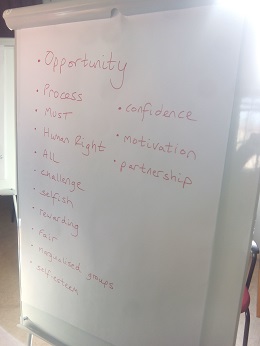 • Opportunity
• Process
• Must
• Human Right
• ALL
• challenge
• selfish
• rewarding
• Fair
• groups
• confidence
• motivation
• partnership